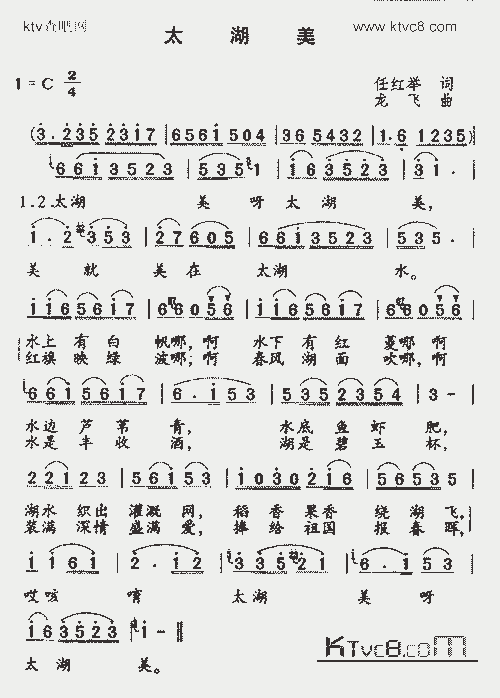 ktv酷吧网 www.ktvc8.com
太 湖 美
1=C 2/4
任红举 词
龙 飞 曲
(3·235 2317 | 6561 504 | 365432 | 1·6 1235)
6613523 | 535 1 | 163523 | 31·
1.2.太湖 美 呀 太 湖 美,
1·2 353 | 27605 | 6613523 | 535·
美 就 美 在 太湖 水。
1165617 | 66056 | 1165617 | 66056
水上 有 白 帆哪,啊 水下 有 红 菱哪 啊
红旗 映 绿 波哪,啊 春风 湖 面 吹哪,啊
6615617 | 6·153 | 5352354 | 3-
水边 芦 苇 青, 水底 鱼 虾 肥,
水是 丰 收 酒, 湖是 碧 玉 杯,
22123 | 56153 | 1030216 | 56535
湖水 织出 灌溉 网, 稻 香 果香 绕 湖 飞,
装满 深情 盛满 爱, 捧 给 祖国 报 春 晖,
1161 | 2·12 | 33521 | 6·153
哎咳 唷 太湖 美 呀
163523 | 1-
太 湖 美。
KTvc8.com